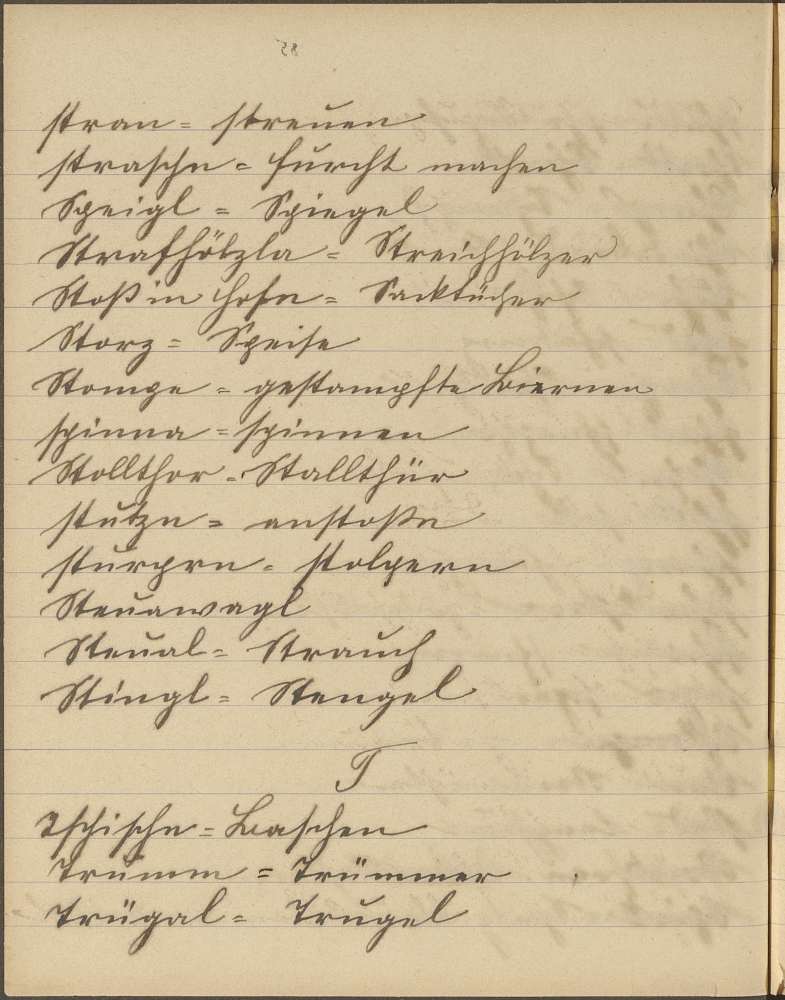 58
stran = streuen
straschn = furcht machen
Speigl = Spiegel
Strafhölzla = Streichhölzer
Stoß in Hosn = Sacktücher
Storz = Speise
Stompe = gestampfte Biernen
spinna = spinnen
Stollthor = Stallthür
stutzn = anstoßn
sturprn = stolpern
Steuawagl
Steual = Strauch
Stingl = Stengel
T
Tschischn = Laschen
Trumm = Trümmer
Trügal = Trugel